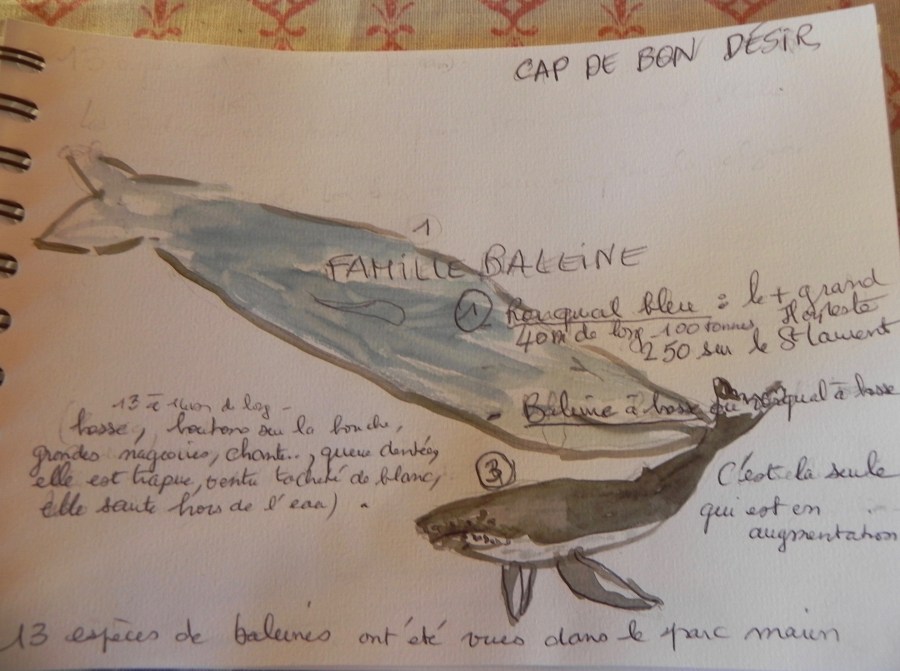 CAP DE BON DÉSIR
1
FAMILLE BALEINE
1 Rorqual bleu : le + grand
40m de long 100 tonnes
250 sur le St Laurent
- Baleine à bosse ou rorqual à bosse
13 à 14m de long -
(bosse, boutons sur la bouche,
grandes nageoires, chant.., queue dentée,
elle est trapue, ventre tacheté de blanc,
elle saute hors de l'eau) .
3
C'est la seule
qui est en
augmentation
13 espèces de baleines ont été vues dans le parc marin